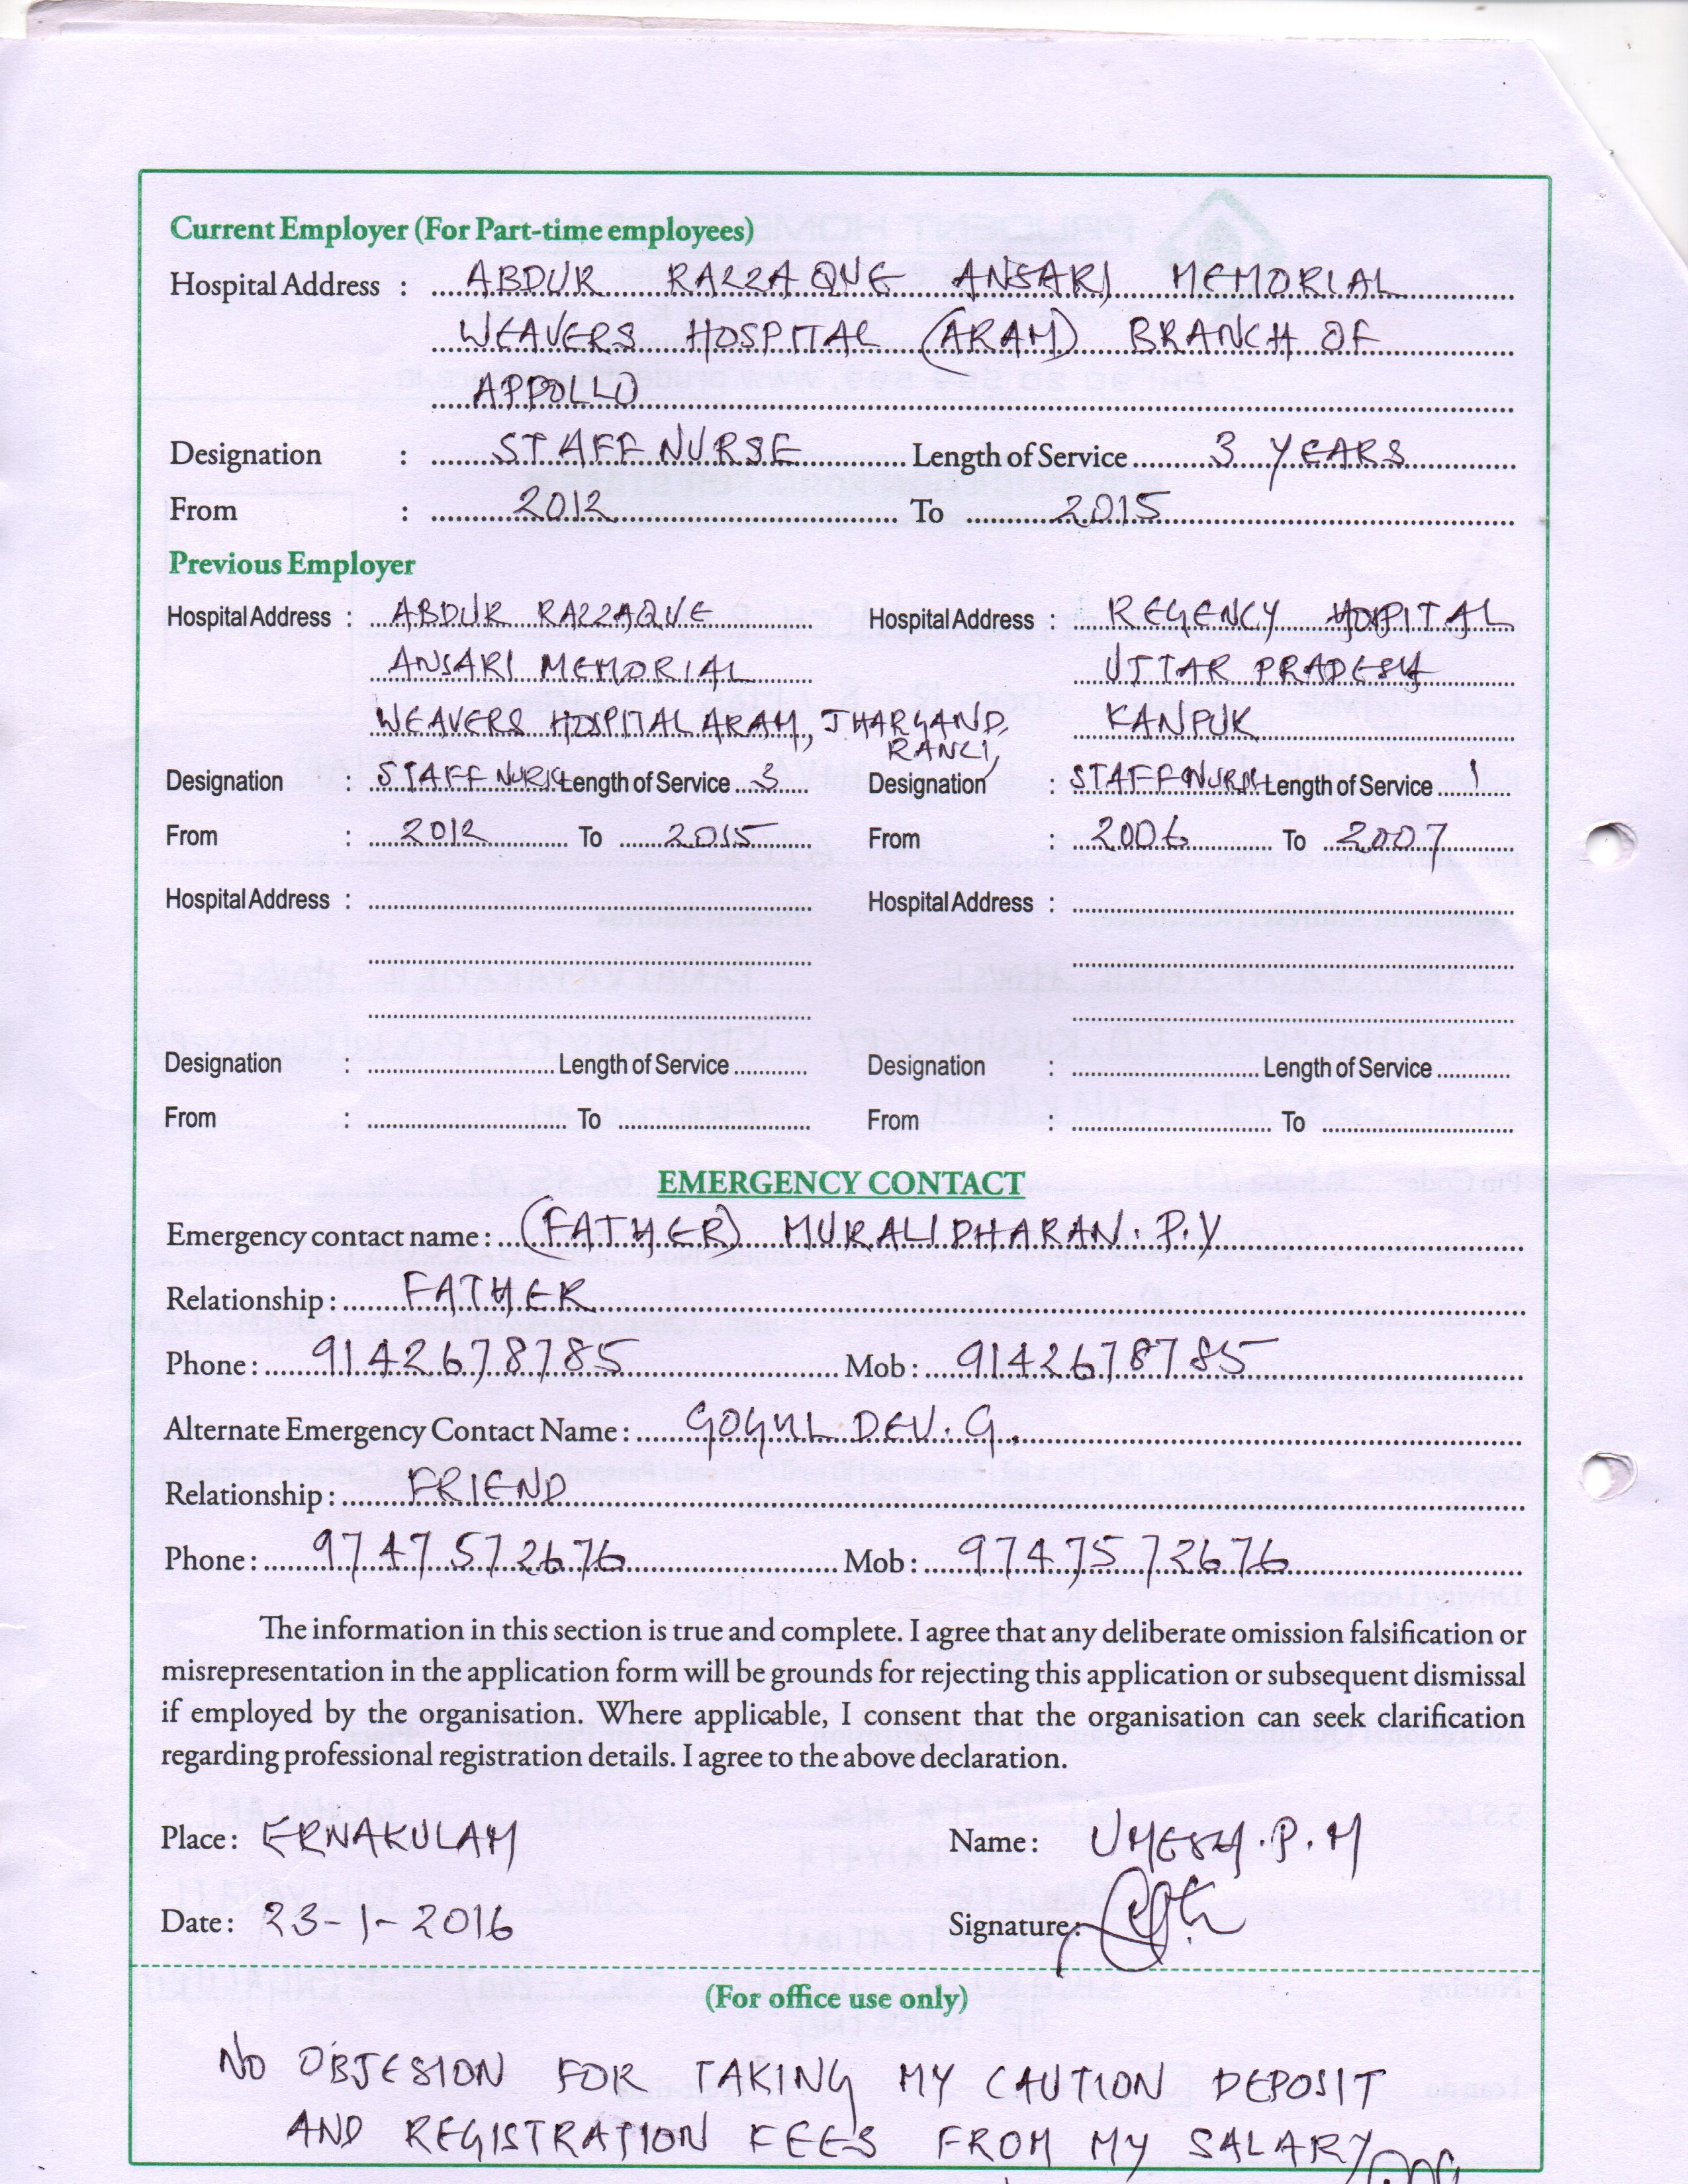 Current Employer (For Part-time employees)
Hospital Address : ABDUR RAZZAQUE ANSARI MEMORIAL
WEAVERS HOSPITAL (ARAM) BRANCH OF
APPOLLO
Designation : STAFF NURSE Length of Service 3 YEARS
From : 2012 To 2015
Previous Employer
Hospital Address : ABDUR RAZZAQUE Hospital Address : REGENCY HOSPITAL
ANSARI MEMORIAL UTTAR PRADESH
WEAVERS HOSPITAL ARAM, JHARGAND, KANPUR
RANCI,
Designation : STAFF NURSE Length of Service 3 Designation : STAFF NURSE Length of Service 1
From : 2012 To 2015 From : 2006 To 2007
Hospital Address : Hospital Address :
Designation : Length of Service Designation : Length of Service
From : To From : To
EMERGENCY CONTACT
Emergency contact name : (FATHER) MURALIDHARAN. P.V
Relationship : FATHER
Phone : 9142678785 Mob : 9142678785
Alternate Emergency Contact Name : GOGUL DEV. G.
Relationship : FRIEND
Phone : 9747572676 Mob : 9747572676
The information in this section is true and complete. I agree that any deliberate omission falsification or
misrepresentation in the application form will be grounds for rejecting this application or subsequent dismissal
if employed by the organisation. Where applicable, I consent that the organisation can seek clarification
regarding professional registration details. I agree to the above declaration.
Place : ERNAKULAM Name : UMESH. P. M
Date : 23-1-2016 Signature :
(For office use only)
NO OBJESION FOR TAKING MY CAUTION DEPOSIT
AND REGISTRATION FEES FROM MY SALARY